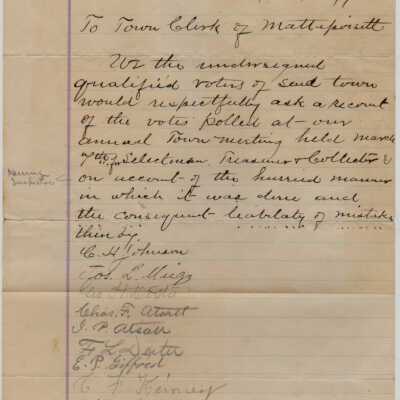 To Town Clerk of Mattapoisett
We the undersigned
qualified voters of said town
would respectfully ask a recount
of the votes polled at our
annual Town meeting held March
for Selectman, Treasurer & Collector &
on account of the hurried manner
in which it was done and
the consequent leabilaty of mistake
therby.
C. H. Johnson
Jos. L.
Chas. F.
J. P.
F. L. Dexter
E. P. Gifford